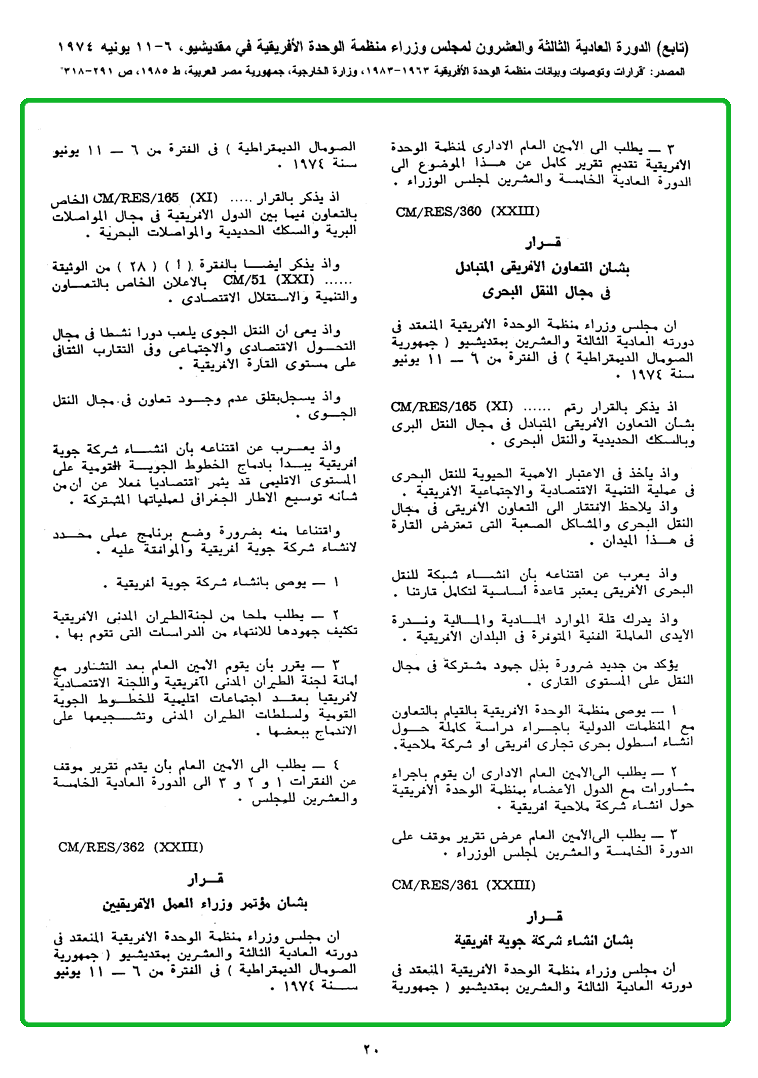 (تابع) الدورة العادية الثالثة والعشرون لمجلس وزراء منظمة الوحدة الأفريقية في مقديشيو، ٦-١١ يونيه ١٩٧٤
المصدر: "قرارات وتوصيات وبيانات منظمة الوحدة الأفريقية ١٩٦٣-١٩٨٣، وزارة الخارجية، جمهورية مصر العربية، ط ١٩٨٥، ص ٢٩١-٣١٨"
٣ — يطلب الى الأمين العام الادارى لمنظمة الوحدة
الأفريقية تقديم تقرير كامل عن هذا الموضوع الى
الدورة العادية الخامسة والعشرين لمجلس الوزراء .
CM/RES/360 (XXIII)
قرار
بشأن التعاون الأفريقى المتبادل
فى مجال النقل البحرى
ان مجلس وزراء منظمة الوحدة الأفريقية المنعقد فى
دورته العادية الثالثة والعشرين بمقديشيو ( جمهورية
الصومال الديمقراطية ) فى الفترة من ٦ — ١١ يونيو
سنة ١٩٧٤ .
اذ يذكر بالقرار رقم ...... CM/RES/165 (XI)
بشأن التعاون الأفريقى المتبادل فى مجال النقل البرى
وبالسكك الحديدية والنقل البحرى .
واذ يأخذ فى الاعتبار الاهمية الحيوية للنقل البحرى
فى عملية التنمية الاقتصادية والاجتماعية الأفريقية .
واذ يلاحظ الافتقار الى التعاون الأفريقى فى مجال
النقل البحرى والمشاكل الصعبة التى تعترض القارة
فى هذا الميدان .
واذ يعرب عن اقتناعه بأن انشاء شبكة للنقل
البحرى الأفريقى يعتبر قاعدة اساسية لتكامل قارتنا .
واذ يدرك قلة الموارد المادية والمالية وندرة
الايدى العاملة الفنية المتوفرة فى البلدان الأفريقية .
يؤكد من جديد ضرورة بذل جهود مشتركة فى مجال
النقل على المستوى القارى .
١ — يوصى منظمة الوحدة الأفريقية بالقيام بالتعاون
مع المنظمات الدولية باجراء دراسة كاملة حول
انشاء اسطول بحرى تجارى أفريقى او شركة ملاحية.
٢ — يطلب الى الامين العام الادارى ان يقوم باجراء
مشاورات مع الدول الاعضاء بمنظمة الوحدة الأفريقية
حول انشاء شركة ملاحية افريقية .
٣ — يطلب الى الامين العام عرض تقرير موقف على
الدورة الخامسة والعشرين لمجلس الوزراء .
CM/RES/361 (XXIII)
قرار
بشأن انشاء شركة جوية أفريقية
أن مجلس وزراء منظمة الوحدة الأفريقية المنعقد فى
دورته العادية الثالثة والعشرين بمقديشيو ( جمهورية
الصومال الديمقراطية ) فى الفترة من ٦ — ١١ يونيو
سنة ١٩٧٤ .
اذ يذكر بالقرار ..... CM/RES/165 (XI) الخاص
بالتعاون فيما بين الدول الأفريقية فى مجال المواصلات
البرية والسكك الحديدية والمواصلات البحرية .
واذ يذكر أيضا بالفقرة ( أ ) ( ٢٨ ) من الوثيقة
...... CM/51 (XXI) بالاعلان الخاص بالتعاون
والتنمية والاستقلال الاقتصادى .
واذ يعى ان النقل الجوى يلعب دورا نشطا فى مجال
التحول الاقتصادى والاجتماعى وفى التقارب الثقافى
على مستوى القارة الأفريقية .
واذ يسجل بقلق عدم وجود تعاون فى مجال النقل
الجوى .
واذ يعرب عن اقتناعه بأن انشاء شركة جوية
افريقية يبدأ بادماج الخطوط الجوية القومية على
المستوى الاقليمى قد يثمر اقتصاديا فعلا عن ان من
شأنه توسيع الاطار الجغرافى لعملياتها المشتركة .
واقتناعا منه بضرورة وضع برنامج عملى محدد
لانشاء شركة جوية افريقية والموافقة عليه .
١ — يوصى بانشاء شركة جوية افريقية .
٢ — يطلب ملحا من لجنة الطيران المدنى الأفريقية
تكثيف جهودها للانتهاء من الدراسات التى تقوم بها .
٣ — يقرر بأن يقوم الأمين العام بعد التشاور مع
امانة لجنة الطيران المدنى الأفريقية واللجنة الاقتصادية
لافريقيا بعقد اجتماعات اقليمية للخطوط الجوية
القومية ولسلطات الطيران المدنى وتشجيعها على
الاندماج ببعضها .
٤ — يطلب الى الامين العام بأن يقدم تقرير موقف
عن الفقرات ١ و ٢ و ٣ الى الدورة العادية الخامسة
والعشرين للمجلس .
CM/RES/362 (XXIII)
قرار
بشأن مؤتمر وزراء العمل الأفريقيين
ان مجلس وزراء منظمة الوحدة الأفريقية المنعقد فى
دورته العادية الثالثة والعشرين بمقديشيو ( جمهورية
الصومال الديمقراطية ) فى الفترة من ٦ — ١١ يونيو
سنة ١٩٧٤ .
٢٠